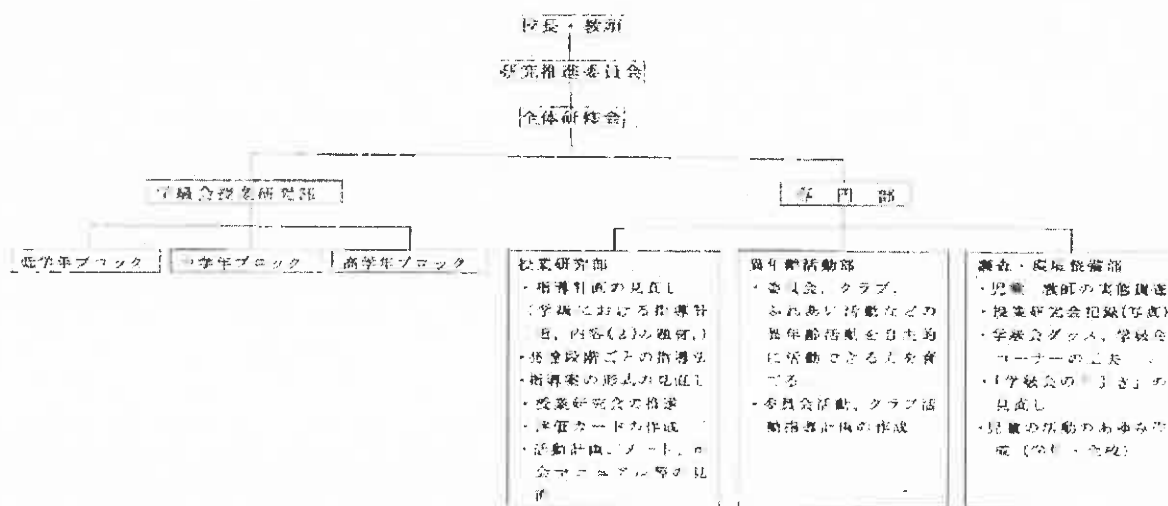 校長・教頭
研究推進委員会
全体研修会
学級会授業研究部
専門部
低学年ブロック
中学年ブロック
高学年ブロック
授業研究部
・指導計画の見直し
(学級における指導計
画、内容(2)の題材、)
・発達段階ごとの指導法
・指導案の形式の見直し
・授業研究会の推進
・評価カードの作成
・活動計画、ノート、司
会マニュアル等の見
直
異年齢活動部
・委員会、クラブ、
ふれあい活動などの
異年齢活動を自主的
に活動できる人を育
てる
・委員会活動、クラブ活
動指導計画の作成
調査・環境整備部
・児童 教師の実態調査
・授業研究会記録(写真)
・学級会グッズ、学級会
コーナーの工夫
・「学級会の き」の
見直し
・児童の活動のあゆみ作
成(学年・全校)